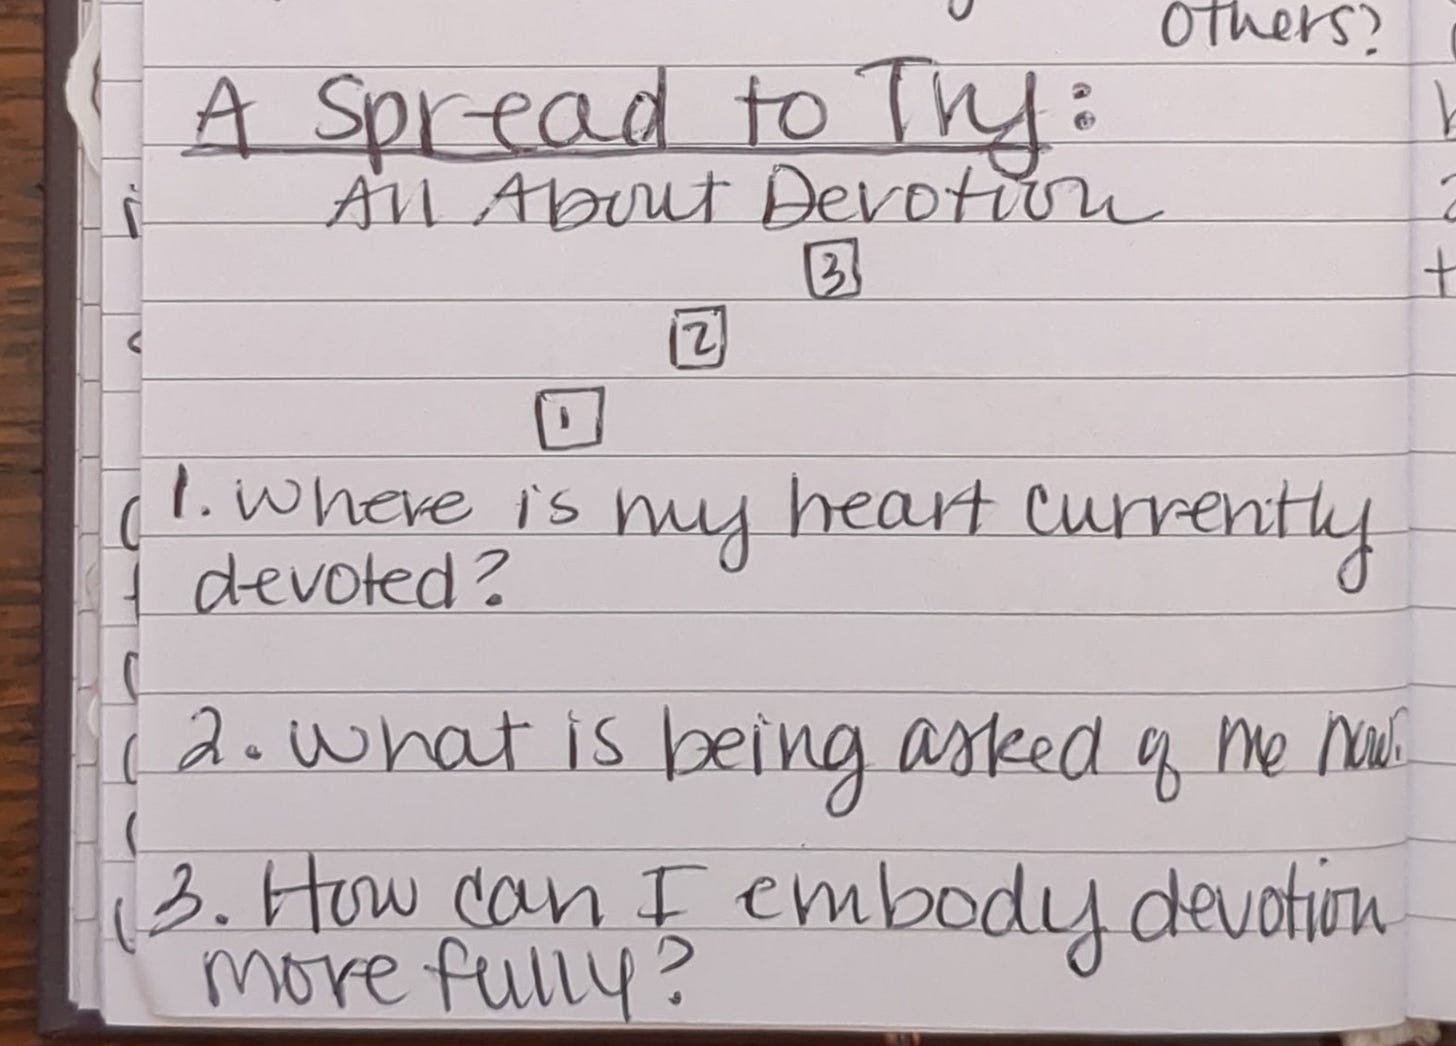 others?
A Spread to Try:
All About Devotion
3
2
1
1. Where is my heart currently
devoted?
2. What is being asked of me now?
3. How can I embody devotion
more fully?